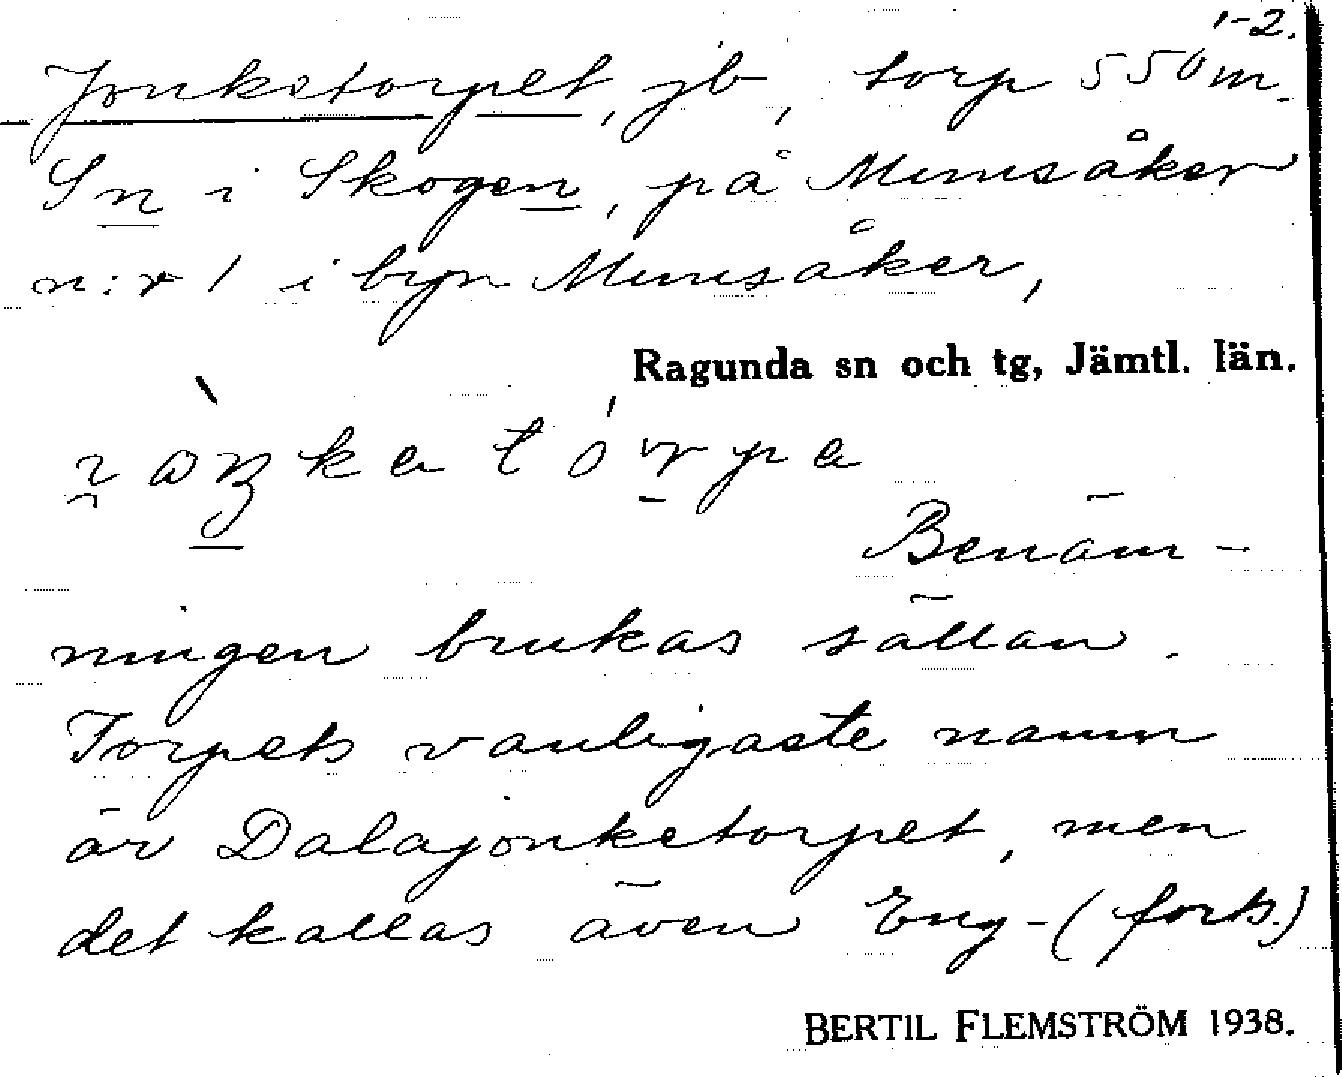 1-2.
Jonketorpet, jb, torp 550 m.
Sn i Skogen, på Munsåker
n:r 1 i byn Munsåker,
Ragunda sn och tg, Jämtl. län.
Benäm-
ningen brukas sällan.
Torpets vanligaste namn
är Dalajonketorpet, men
det kallas även Eng-(forts.)
BERTIL FLEMSTRÖM 1938.